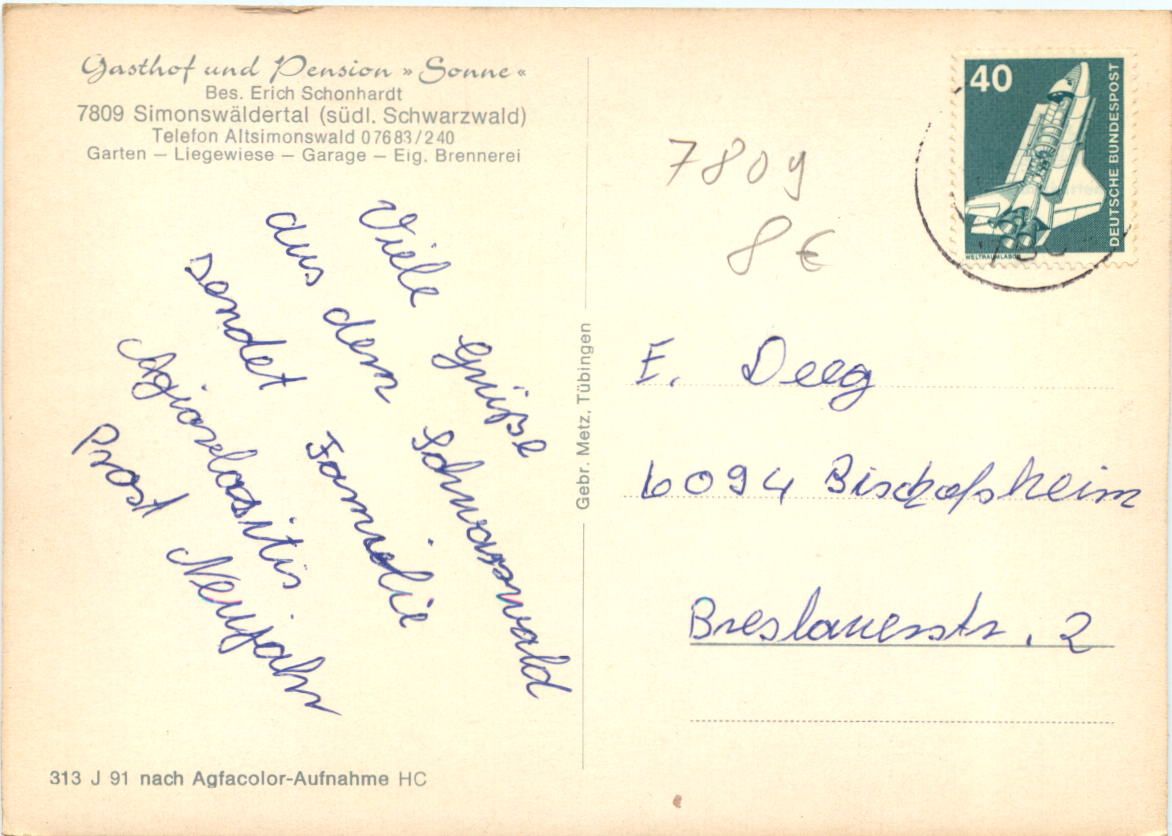 Gasthof und Pension »Sonne«
Bes. Erich Schonhardt
7809 Simonswäldertal (südl. Schwarzwald)
Telefon Altsimonswald 07683/240
Garten – Liegewiese – Garage – Eig. Brennerei
Viele Grüße
aus dem Schwarzwald
sendet Familie
Agiovlasitis
Prost Neujahr
313 J 91 nach Agfacolor-Aufnahme HC
Gebr. Metz, Tübingen
7809
8€
40
DEUTSCHE BUNDESPOST
WELTRAUMLABOR
E. Deeg
6094 Bischofsheim
Breslauerstr. 2